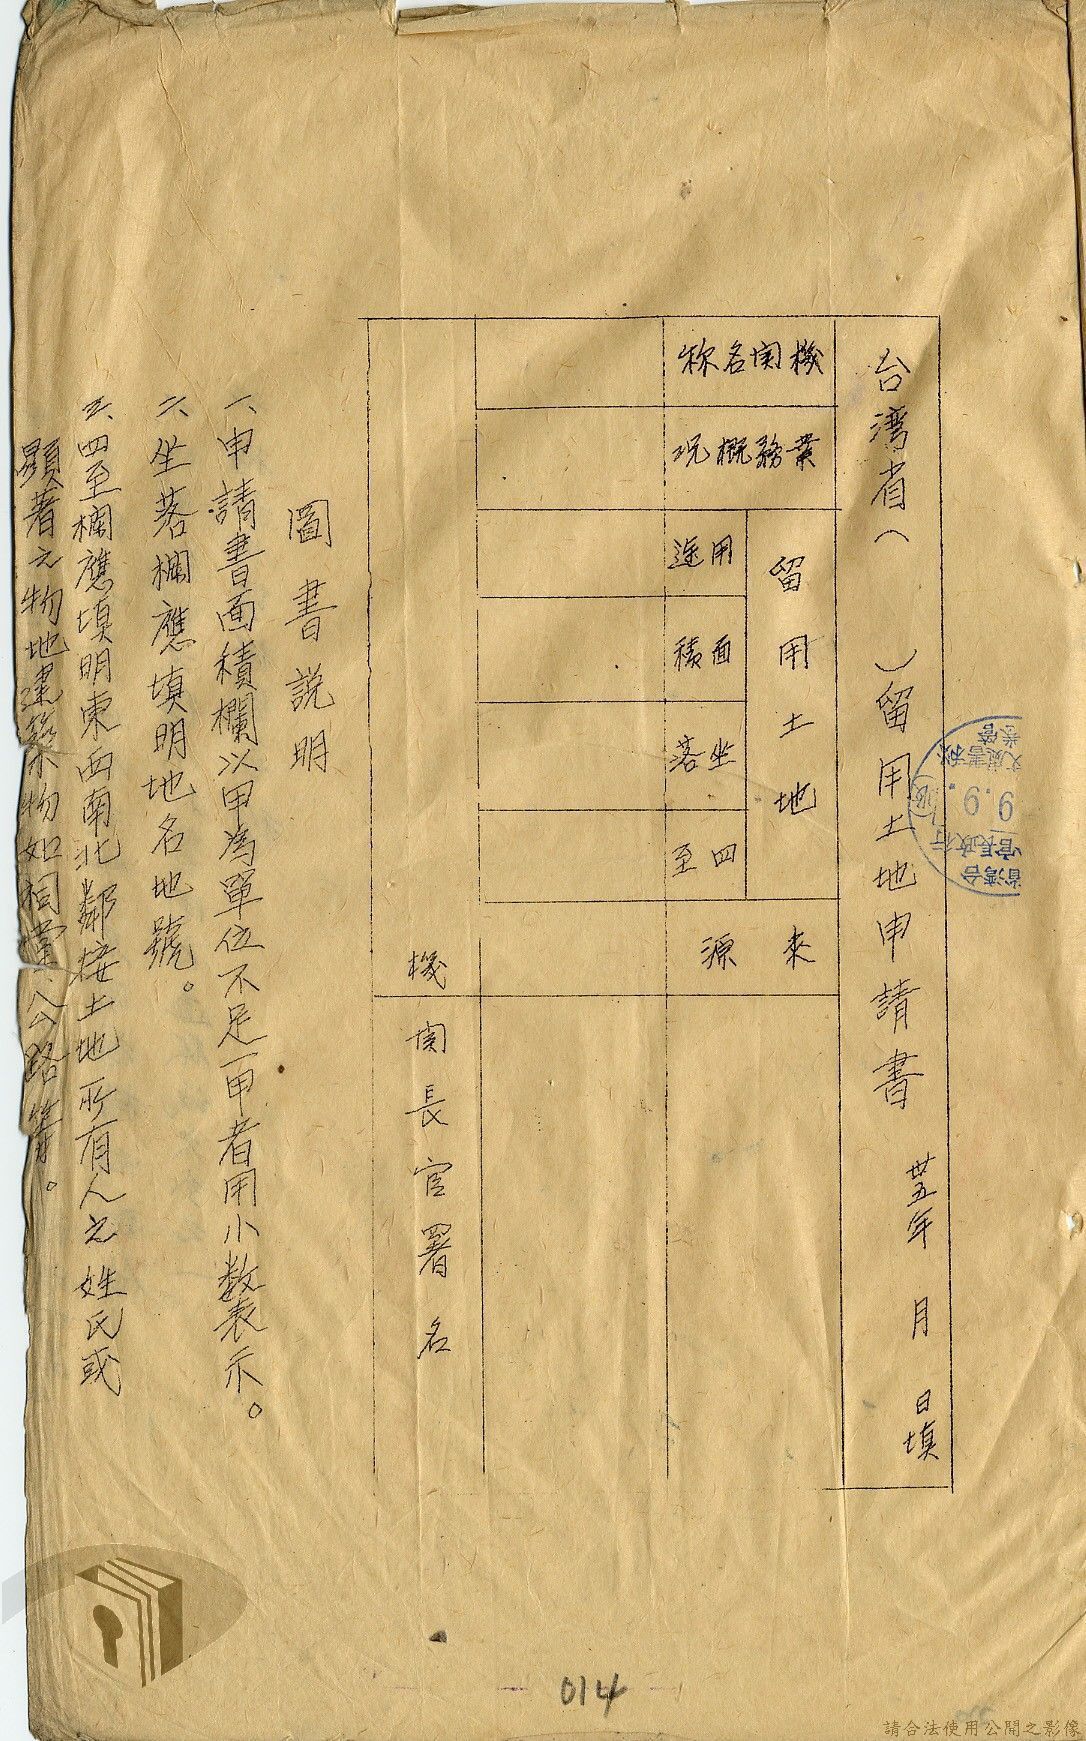 台湾省（　　）留用土地申請書　卅五年　月　日填
機関名称
業務概況
留用土地
用途
面積
坐落
四至
來源
機関長官署名
圖書説明
一、申請書面積欄以甲為單位不足一甲者用小数表示。
二、坐落欄應填明地名地號。
三、四至欄應填明東西南北鄰接土地所有人之姓氏或
顯著之物地建築物如祠堂公路等。
台湾省
行政長官
9.9.
014
請合法使用公開之影像